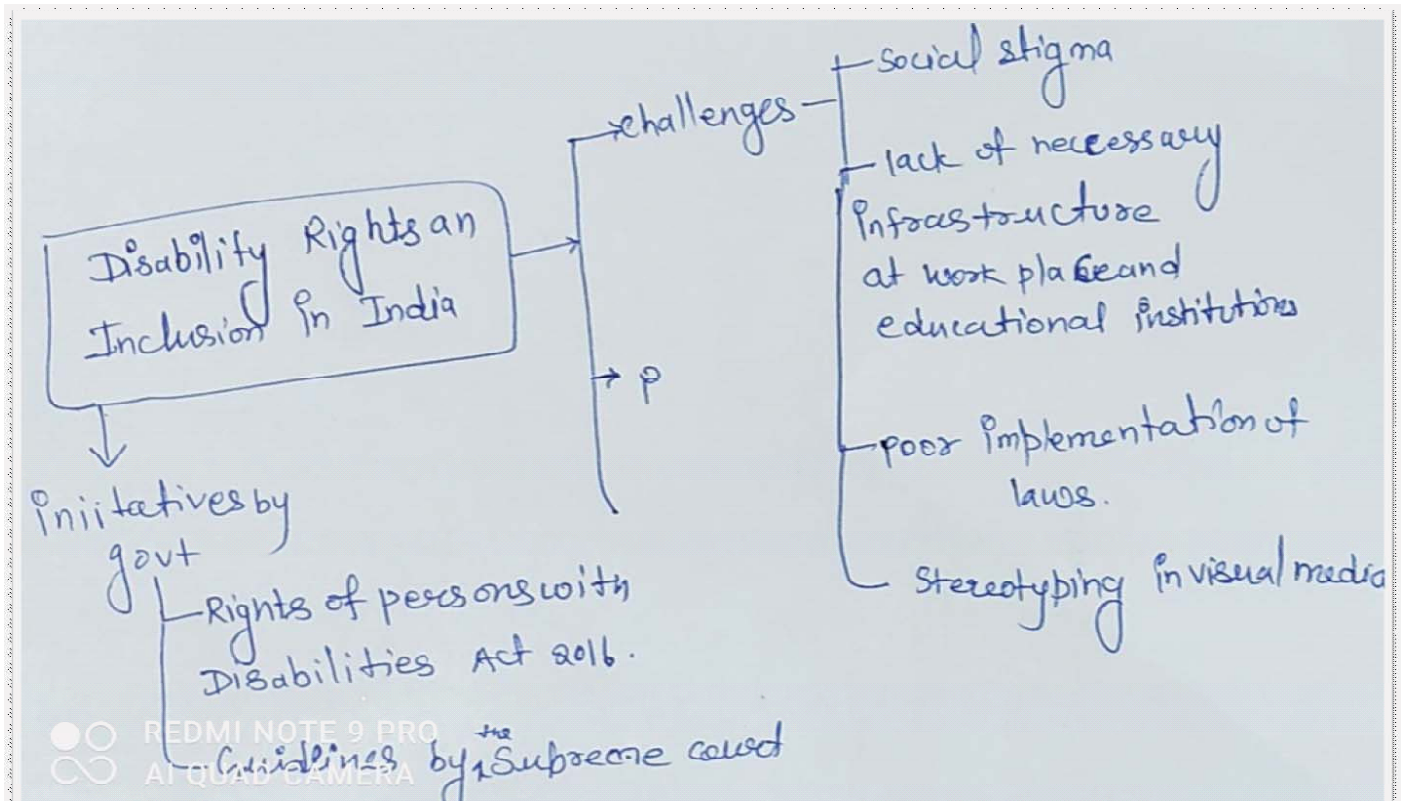 Disability Rights an
Inclusion in India
→challenges
social stigma
lack of neccessary
infrastructure
at work place and
educational institutions
poor implementation of
laws.
Stereotyping in visual media
→ p
iniitatives by
govt
Rights of persons with
Disabilities Act 2016.
Guidlines by the Supreme court
REDMI NOTE 9 PRO
AI QUAD CAMERA